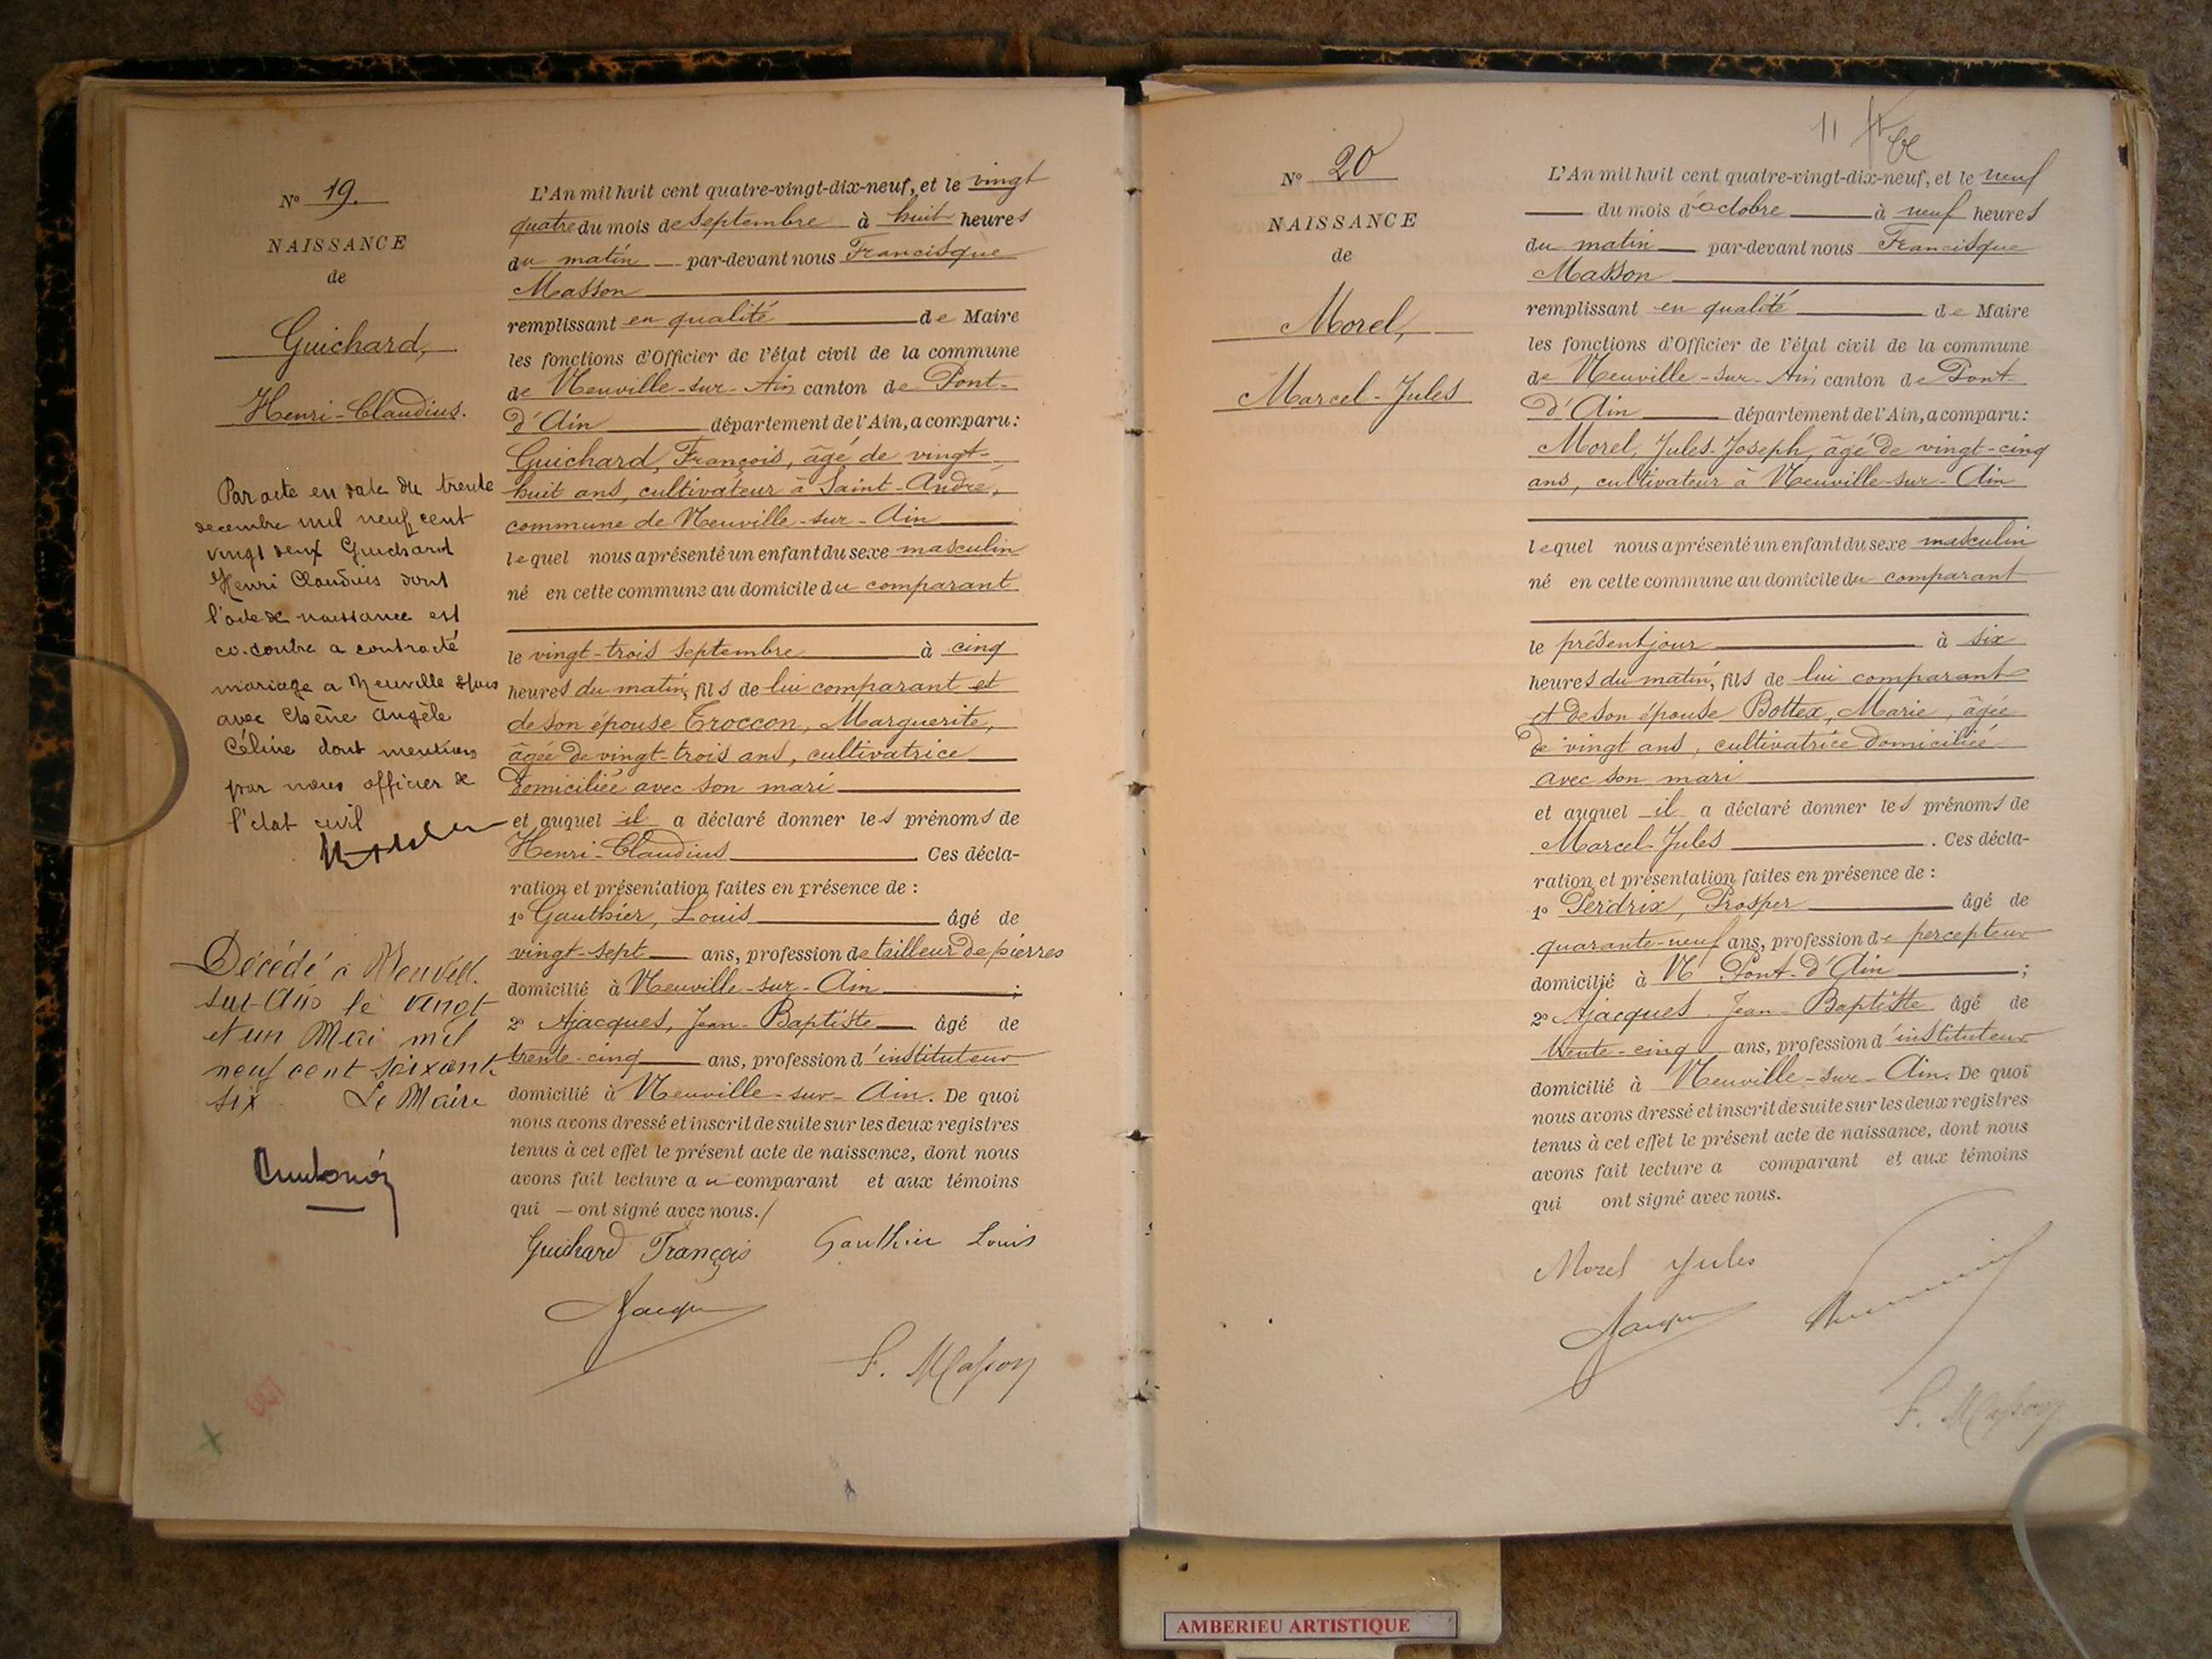 Nº 19.
NAISSANCE
de
Guichard,
Henri-Claudius.
Par acte en date du trente
decembre mil neuf cent
vingt deux Guichard
Henri Claudius dont
l'acte de naissance est
ci-contre a contracté
mariage a Neuville s/ Ain
avec Chêne Angèle
Céline dont mention
par nous officier de
l'état civil
Décédé à Neuville
sur-Ain le vingt
et un Mai mil
neuf cent soixante
six Le Maire
L'An mil huit cent quatre-vingt-dix-neuf, et le vingt
quatre du mois de Septembre à huit heures
du matin par-devant nous Francisque
Masson
remplissant en qualité de Maire
les fonctions d'Officier de l'état civil de la commune
de Neuville-sur-Ain canton de Pont-
d'Ain département de l'Ain, a comparu:
Guichard, François, âgé de vingt-
huit ans, cultivateur à Saint-André,
commune de Neuville-sur-Ain
lequel nous a présenté un enfant du sexe masculin
né en cette commune au domicile du comparant
le vingt-trois Septembre à cinq
heures du matin, fils de lui comparant et
de son épouse Troccon, Marguerite,
âgée de vingt-trois ans, cultivatrice
domiciliée avec son mari
et auquel il a déclaré donner les prénoms de
Henri-Claudius. Ces décla-
ration et présentation faites en présence de :
1º Gauthier, Louis âgé de
vingt-sept ans, profession de tailleur de pierres
domicilié à Neuville-sur-Ain ;
2º Ajacques, Jean-Baptiste âgé de
trente-cinq ans, profession d'instituteur
domicilié à Neuville-sur-Ain. De quoi
nous avons dressé et inscrit de suite sur les deux registres
tenus à cet effet le présent acte de naissance, dont nous
avons fait lecture au comparant et aux témoins
qui — ont signé avec nous./
Guichard François Gauthier Louis
Ajacques
F. Masson
11
Nº 20
NAISSANCE
de
Morel,
Marcel-Jules
L'An mil huit cent quatre-vingt-dix-neuf, et le neuf
du mois d'octobre à neuf heures
du matin par-devant nous Francisque
Masson
remplissant en qualité de Maire
les fonctions d'Officier de l'état civil de la commune
de Neuville-sur-Ain canton de Pont-
d'Ain département de l'Ain, a comparu:
Morel, Jules-Joseph, âgé de vingt-cinq
ans, cultivateur à Neuville-sur-Ain
lequel nous a présenté un enfant du sexe masculin
né en cette commune au domicile du comparant
le présent jour à six
heures du matin, fils de lui comparant
et de son épouse Bottex, Marie, âgée
de vingt ans, cultivatrice domiciliée
avec son mari
et auquel il a déclaré donner les prénoms de
Marcel-Jules. Ces décla-
ration et présentation faites en présence de :
1º Perdrix, Prosper âgé de
quarante-neuf ans, profession de percepteur
domicilié à N Pont-d'Ain ;
2º Ajacques Jean-Baptiste âgé de
trente-cinq ans, profession d'instituteur
domicilié à Neuville-sur-Ain. De quoi
nous avons dressé et inscrit de suite sur les deux registres
tenus à cet effet le présent acte de naissance, dont nous
avons fait lecture a comparant et aux témoins
qui ont signé avec nous.
Morel Jules
Ajacques
F. Masson
AMBERIEU ARTISTIQUE